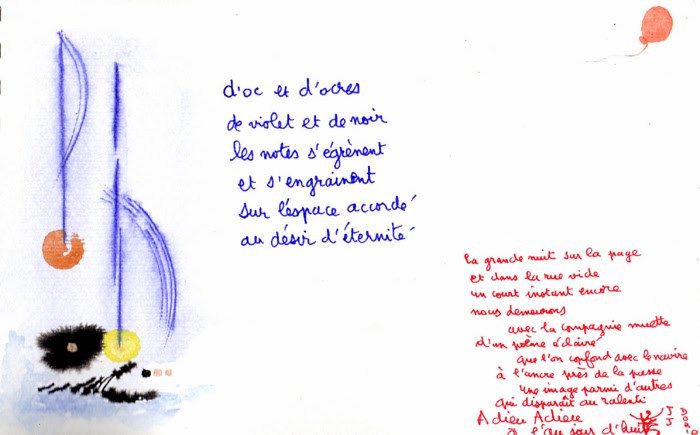 d'oc et d'ocres
de violet et de noir
les notes s'égrènent
et s'engrainent
sur l'éspace accordé
au désir d'éternité
La grande nuit sur la page
et dans la rue vide
un court instant encore
nous demeurons
avec la compagnie muette
d'un poème éclairé
que l'on confond avec le navire
à l'ancre près de la passe
une image parmi d'autres
qui disparaît au ralenti
Adieu Adieu
l'au soir d'huit
JJ
DORIO